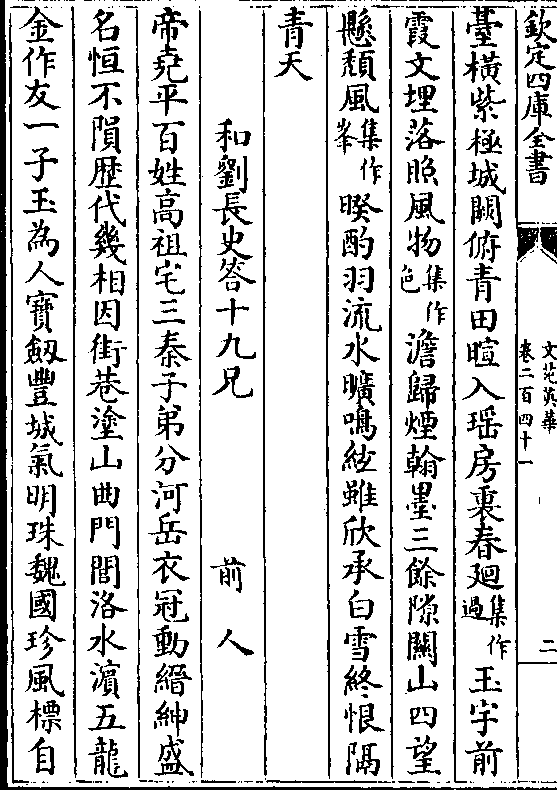 欽定四庫全書
文苑英華
卷二百四十一
二
臺橫紫極城闕俯青田暄入瑶房裏春廻集作過玉宇前
霞文埋落照風物集作色澹歸煙翰墨三餘隙關山四望
懸頽風集作峯暌酌羽流水曠鳴絃雖欣承白雪終恨隔
青天
和劉長史答十九兄
前人
帝堯平百姓高祖宅三秦子弟分河岳衣冠動縉紳盛
名恒不隕歴代幾相因街巷塗山曲門閭洛水濵五龍
金作友一子玉為人寳劔豐城氣明珠魏國珍風標自